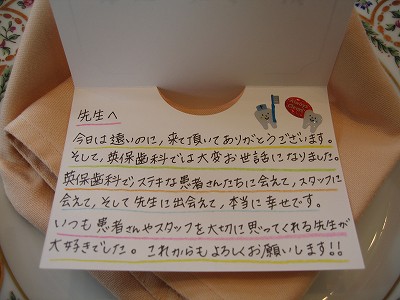 先生へ
今日は遠いのに、来て頂いてありがとうございます。
そして、英保歯科では大変お世話になりました。
英保歯科で、ステキな患者さんたちに会えて、スタッフに
会えて、そして先生に出会えて、本当に幸せです。
いつも患者さんやスタッフを大切に思ってくれる先生が
大好きでした。これからもよろしくお願いします!!